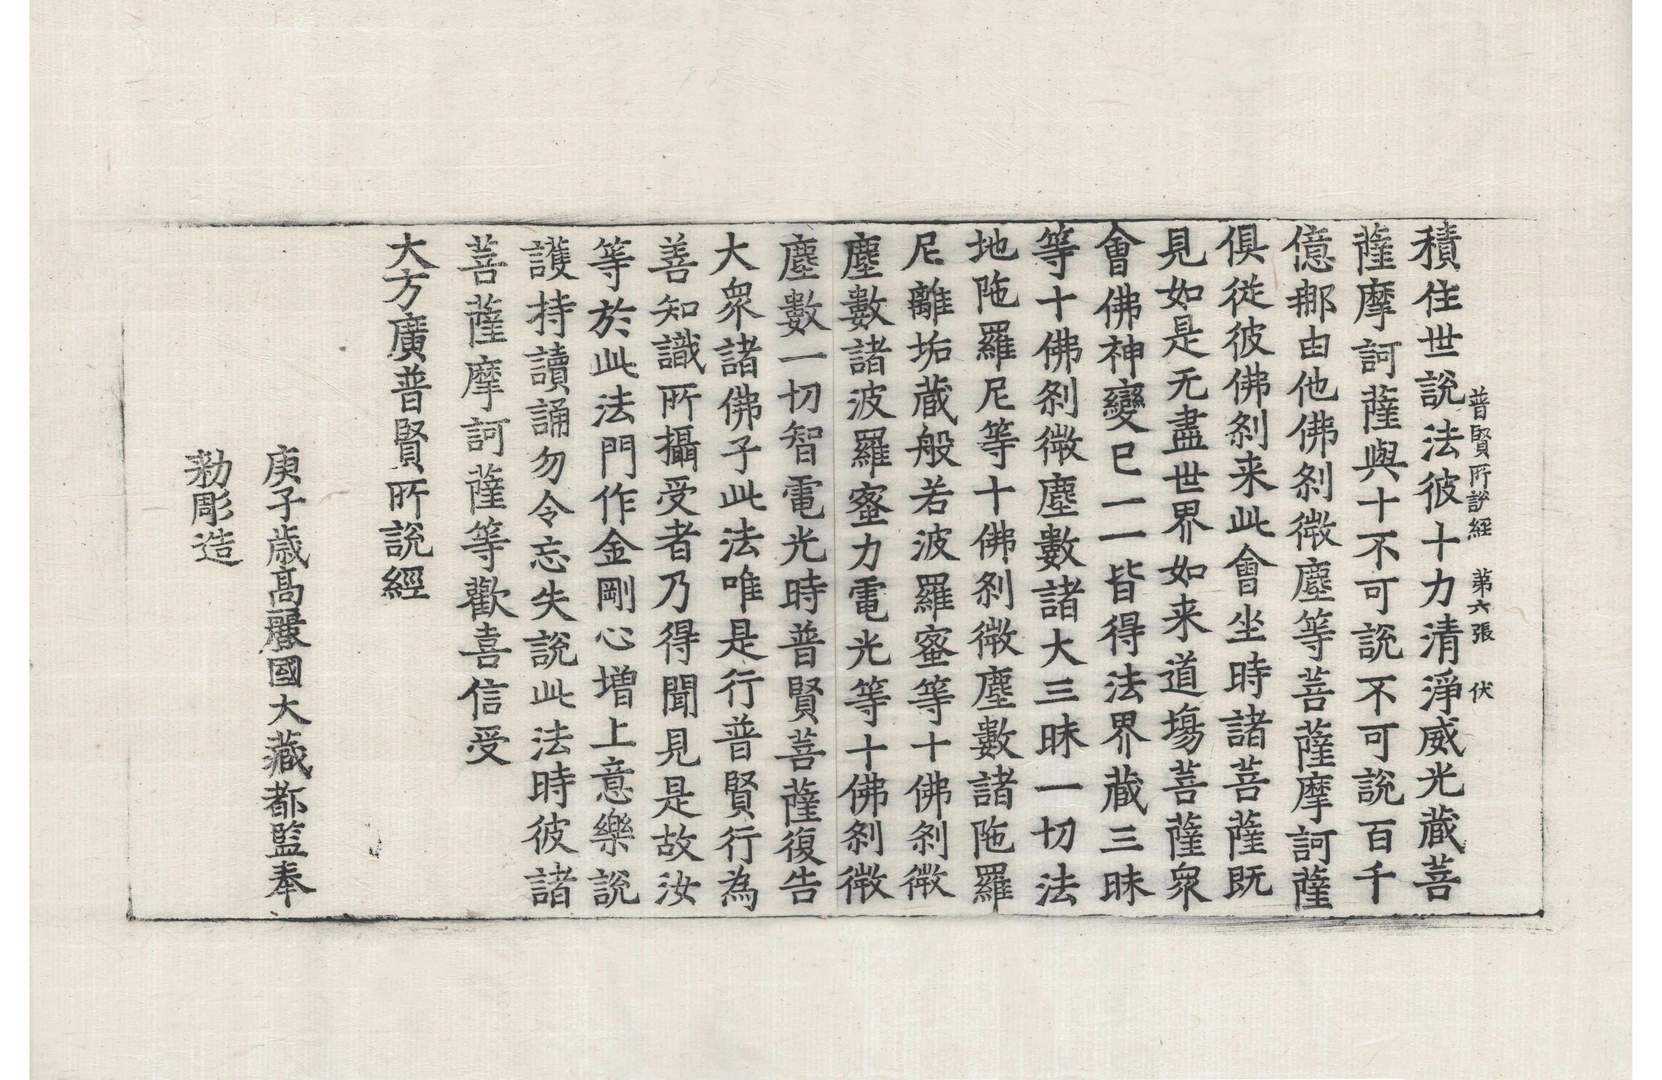 普賢所說經 苐六張 伏
積住世說法彼十力清淨威光藏菩
薩摩訶薩與十不可說不可說百千
億那由他佛剎微塵等菩薩摩訶薩
俱從彼佛剎来此會坐時諸菩薩既
見如是无盡世界如来道場菩薩衆
會佛神變已一一皆得法界藏三昧
等十佛剎微塵數諸大三昧一切法
地陁羅尼等十佛剎微塵數諸陁羅
尼離垢藏般若波羅蜜等十佛剎微
塵數諸波羅蜜力電光等十佛剎微
塵數一切智電光時普賢菩薩復告
大衆諸佛子此法唯是行普賢行為
善知識所攝受者乃得聞見是故汝
等於此法門作金剛心增上意樂說
護持讀誦勿令忘失說此法時彼諸
菩薩摩訶薩等歡喜信受
大方廣普賢所說經
庚子歲高麗國大藏都監奉
勑彫造